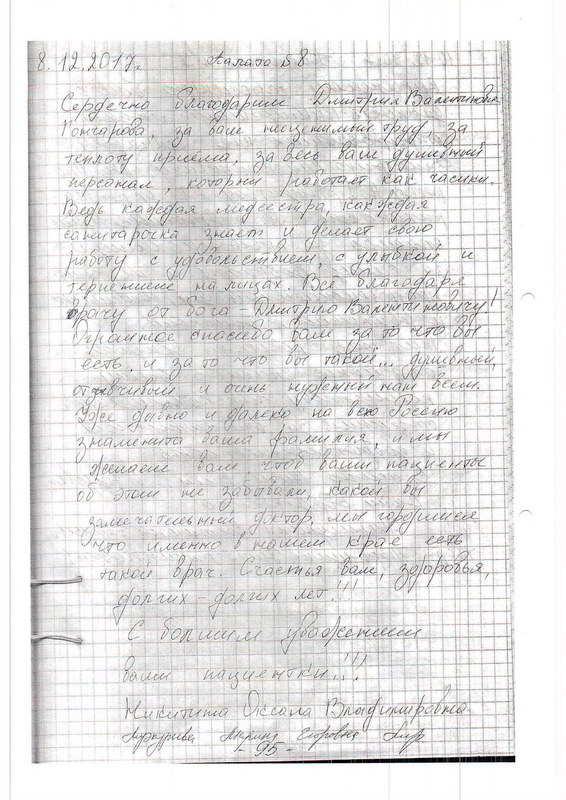 8.12.2017г. Палата №8
Сердечно благодарим Дмитрия Валентиновича
Гончарова, за ваш неоценимый труд, за
теплоту приёма, за весь ваш душевный
персонал, который работает как часики.
Ведь каждая медсестра, каждая
санитарочка знает и делает свою
работу с удовольствием, с улыбкой и
терпением на лицах. Всё благодаря
врачу от бога - Дмитрию Валентиновичу!
Огромное спасибо вам за то что вы
есть. и за то что вы такой... душевный,
отзывчивый и очень нужный нам всем.
Уже давно и далеко на всю Россию
знаменита ваша фамилия, и мы
желаем вам, чтоб ваши пациенты
об этом не забывали, какой вы
замечательный доктор. мы гордимся
что именно в нашем крае есть
такой врач. Счастья вам, здоровья,
долгих-долгих лет!!!
С большим уважением
ваши пациентки!!!
Никитина Оксана Владимировна
Марина Егоровна
- 95 -